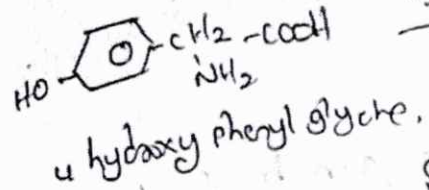 CH2 - COOH
HO
NH2
4 hydroxy phenyl glycne.